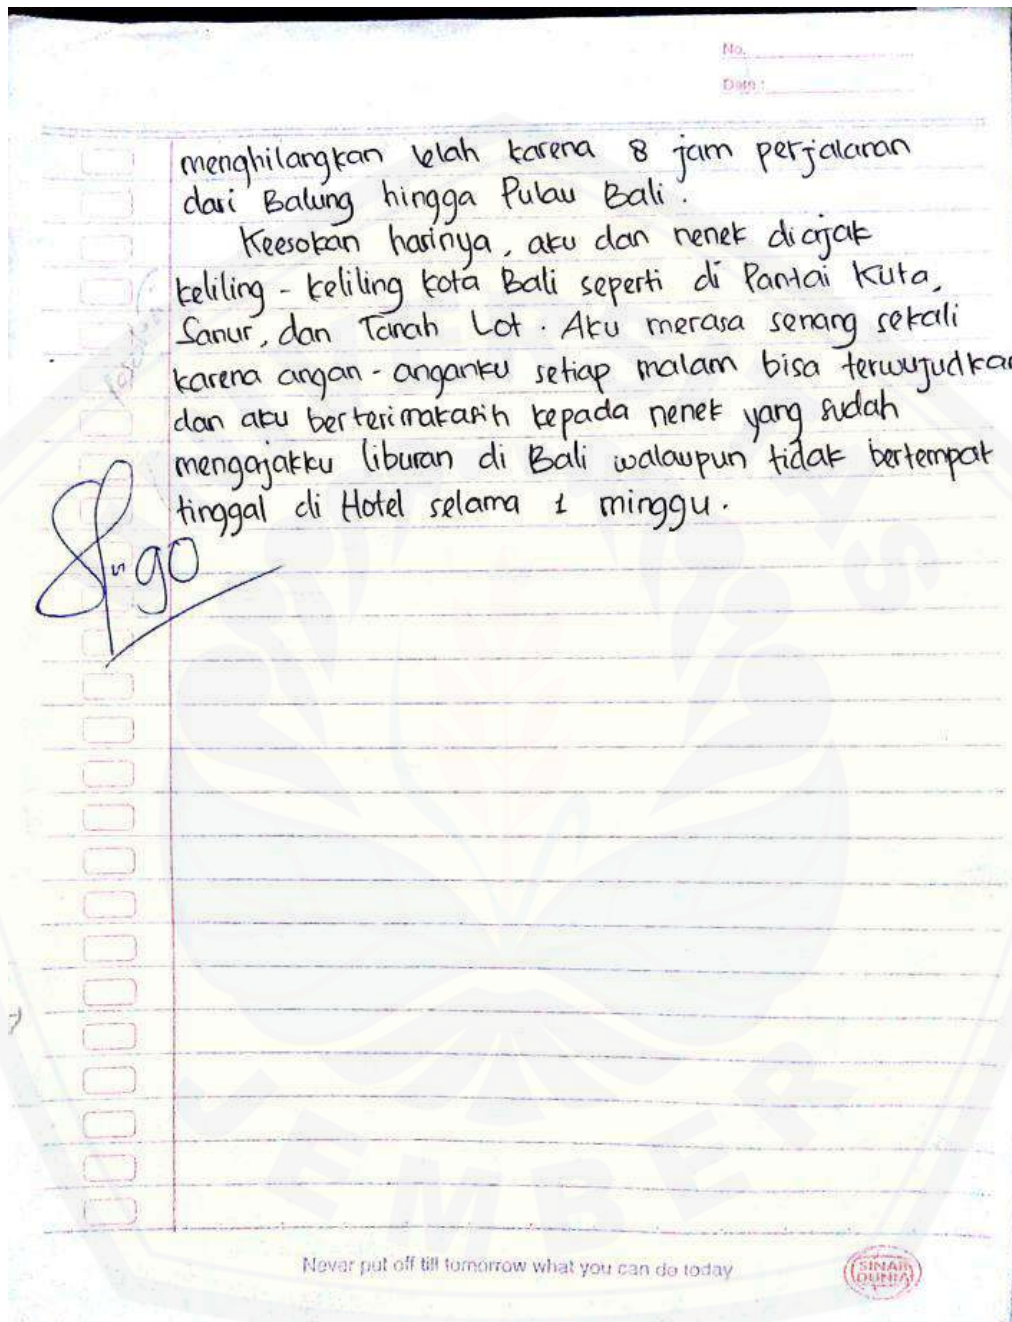 No.
Date :
menghilangkan lelah karena 8 jam perjalanan
dari Balung hingga Pulau Bali.
Keesokan harinya, aku dan nenek diajak
keliling - keliling kota Bali seperti di Pantai Kuta,
Sanur, dan Tanah Lot. Aku merasa senang sekali
karena angan - anganku setiap malam bisa terwujudkan
dan aku berterimakasih kepada nenek yang sudah
mengajakku liburan di Bali walaupun tidak bertempat
tinggal di Hotel selama 1 minggu.
90
JEMBER
Never put off till tomorrow what you can do today
SINAR
DUNIA